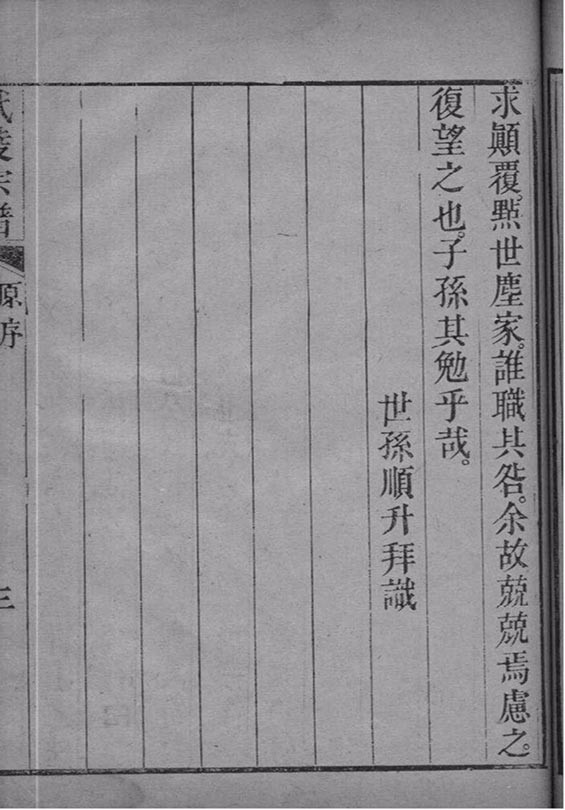 求顚覆。㸃世塵家。誰職其咎。余故兢兢焉慮之。
復望之也。子孫其勉乎哉。
世孫順升拜識
宗譜
原序
三